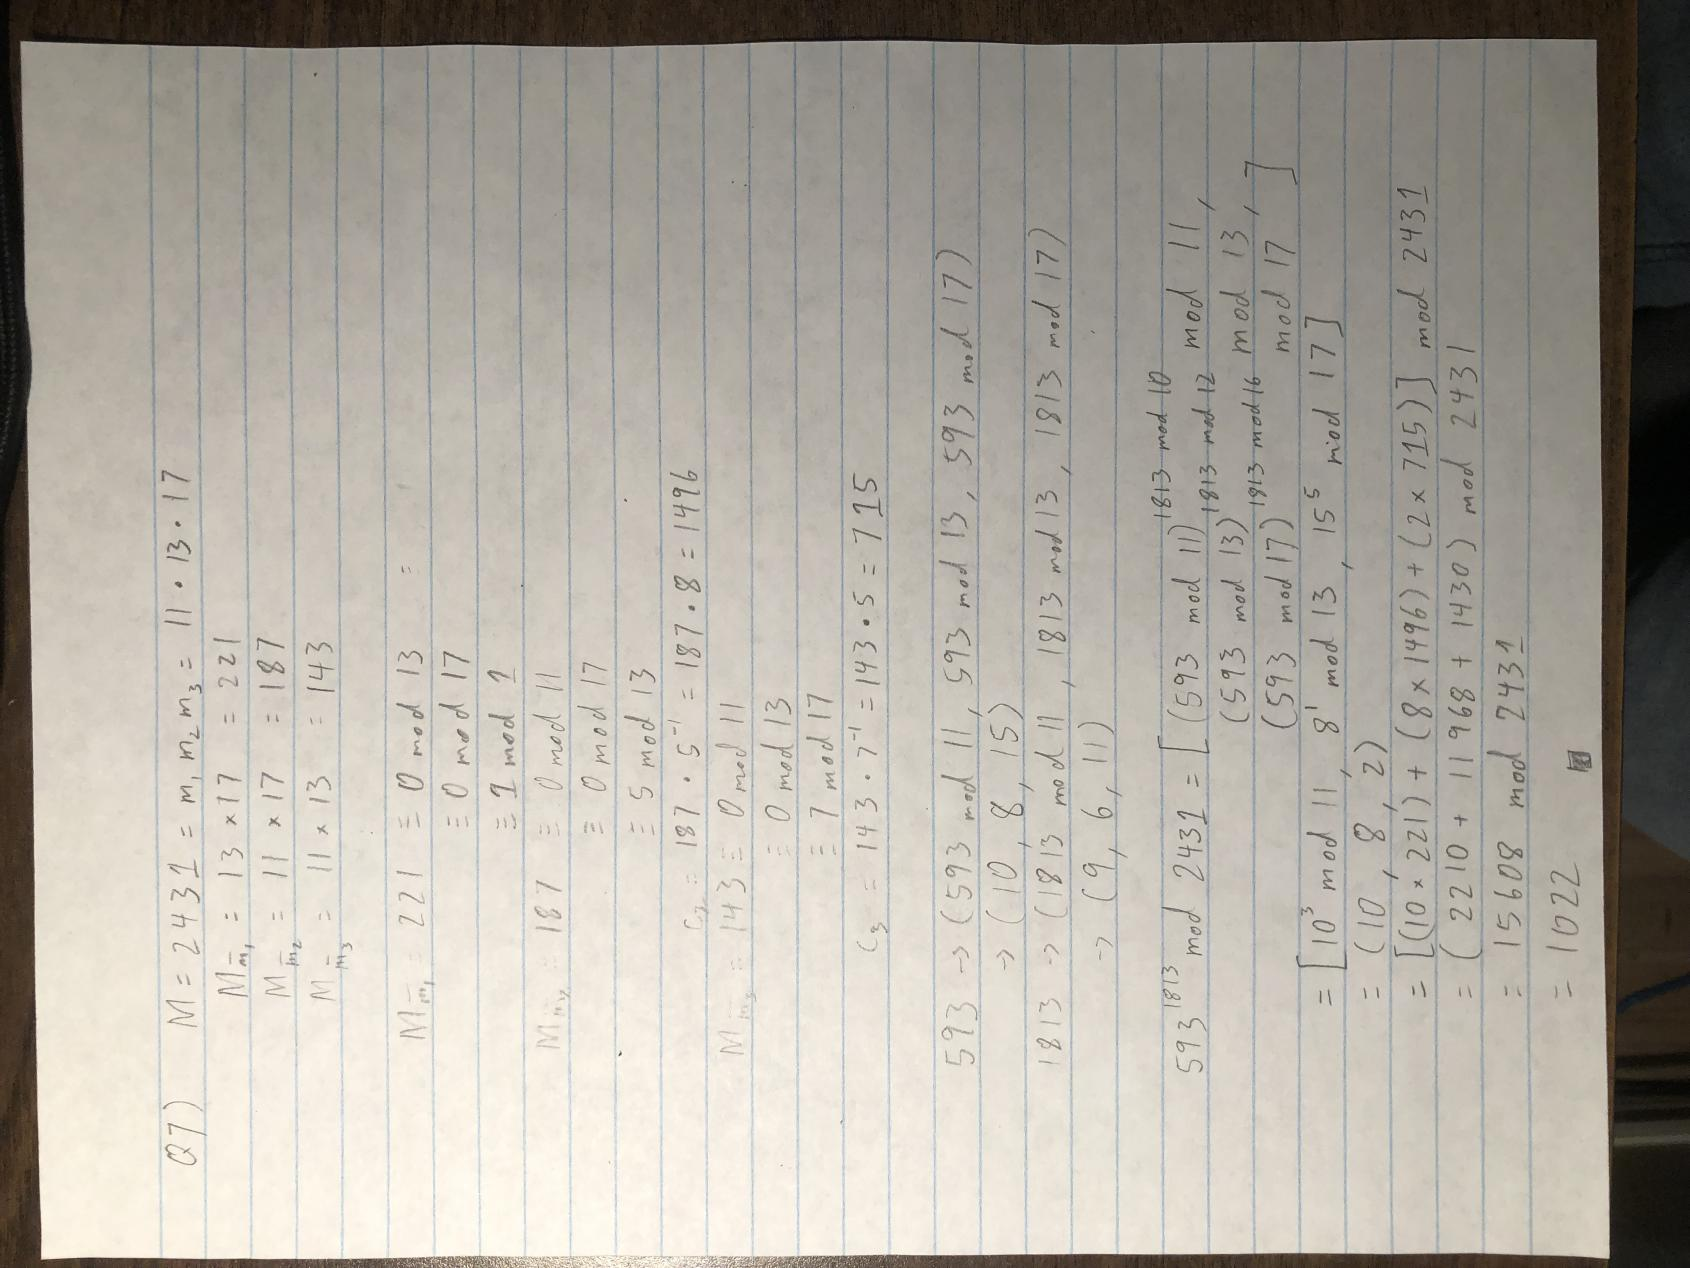 Q7) M = 2431 = m₁ m₂ m₃ = 11 · 13 · 17
M_m̄₁ = 13 × 17 = 221
M_m̄₂ = 11 × 17 = 187
M_m̄₃ = 11 × 13 = 143
M_m̄₁ = 221 ≡ 0 mod 13 =
≡ 0 mod 17
≡ 1 mod 1
M_m̄₂ = 187 ≡ 0 mod 11
≡ 0 mod 17
≡ 5 mod 13
C₂ = 187 · 5⁻¹ = 187 · 8 = 1496
M_m̄₃ = 143 ≡ 0 mod 11
≡ 0 mod 13
≡ 7 mod 17
C₃ = 143 · 7⁻¹ = 143 · 5 = 715
593 -> (593 mod 11, 593 mod 13, 593 mod 17)
-> (10, 8, 15)
1813 -> (1813 mod 11, 1813 mod 13, 1813 mod 17)
-> (9, 6, 11)
593¹⁸¹³ mod 2431 = [(593 mod 11)^(1813 mod 10) mod 11,
(593 mod 13)^(1813 mod 12) mod 13,
(593 mod 17)^(1813 mod 16) mod 17]
= [10³ mod 11, 8¹ mod 13, 15⁵ mod 17]
= (10, 8, 2)
= [(10 × 221) + (8 × 1496) + (2 × 715)] mod 2431
= (2210 + 11968 + 1430) mod 2431
= 15608 mod 2431
= 1022